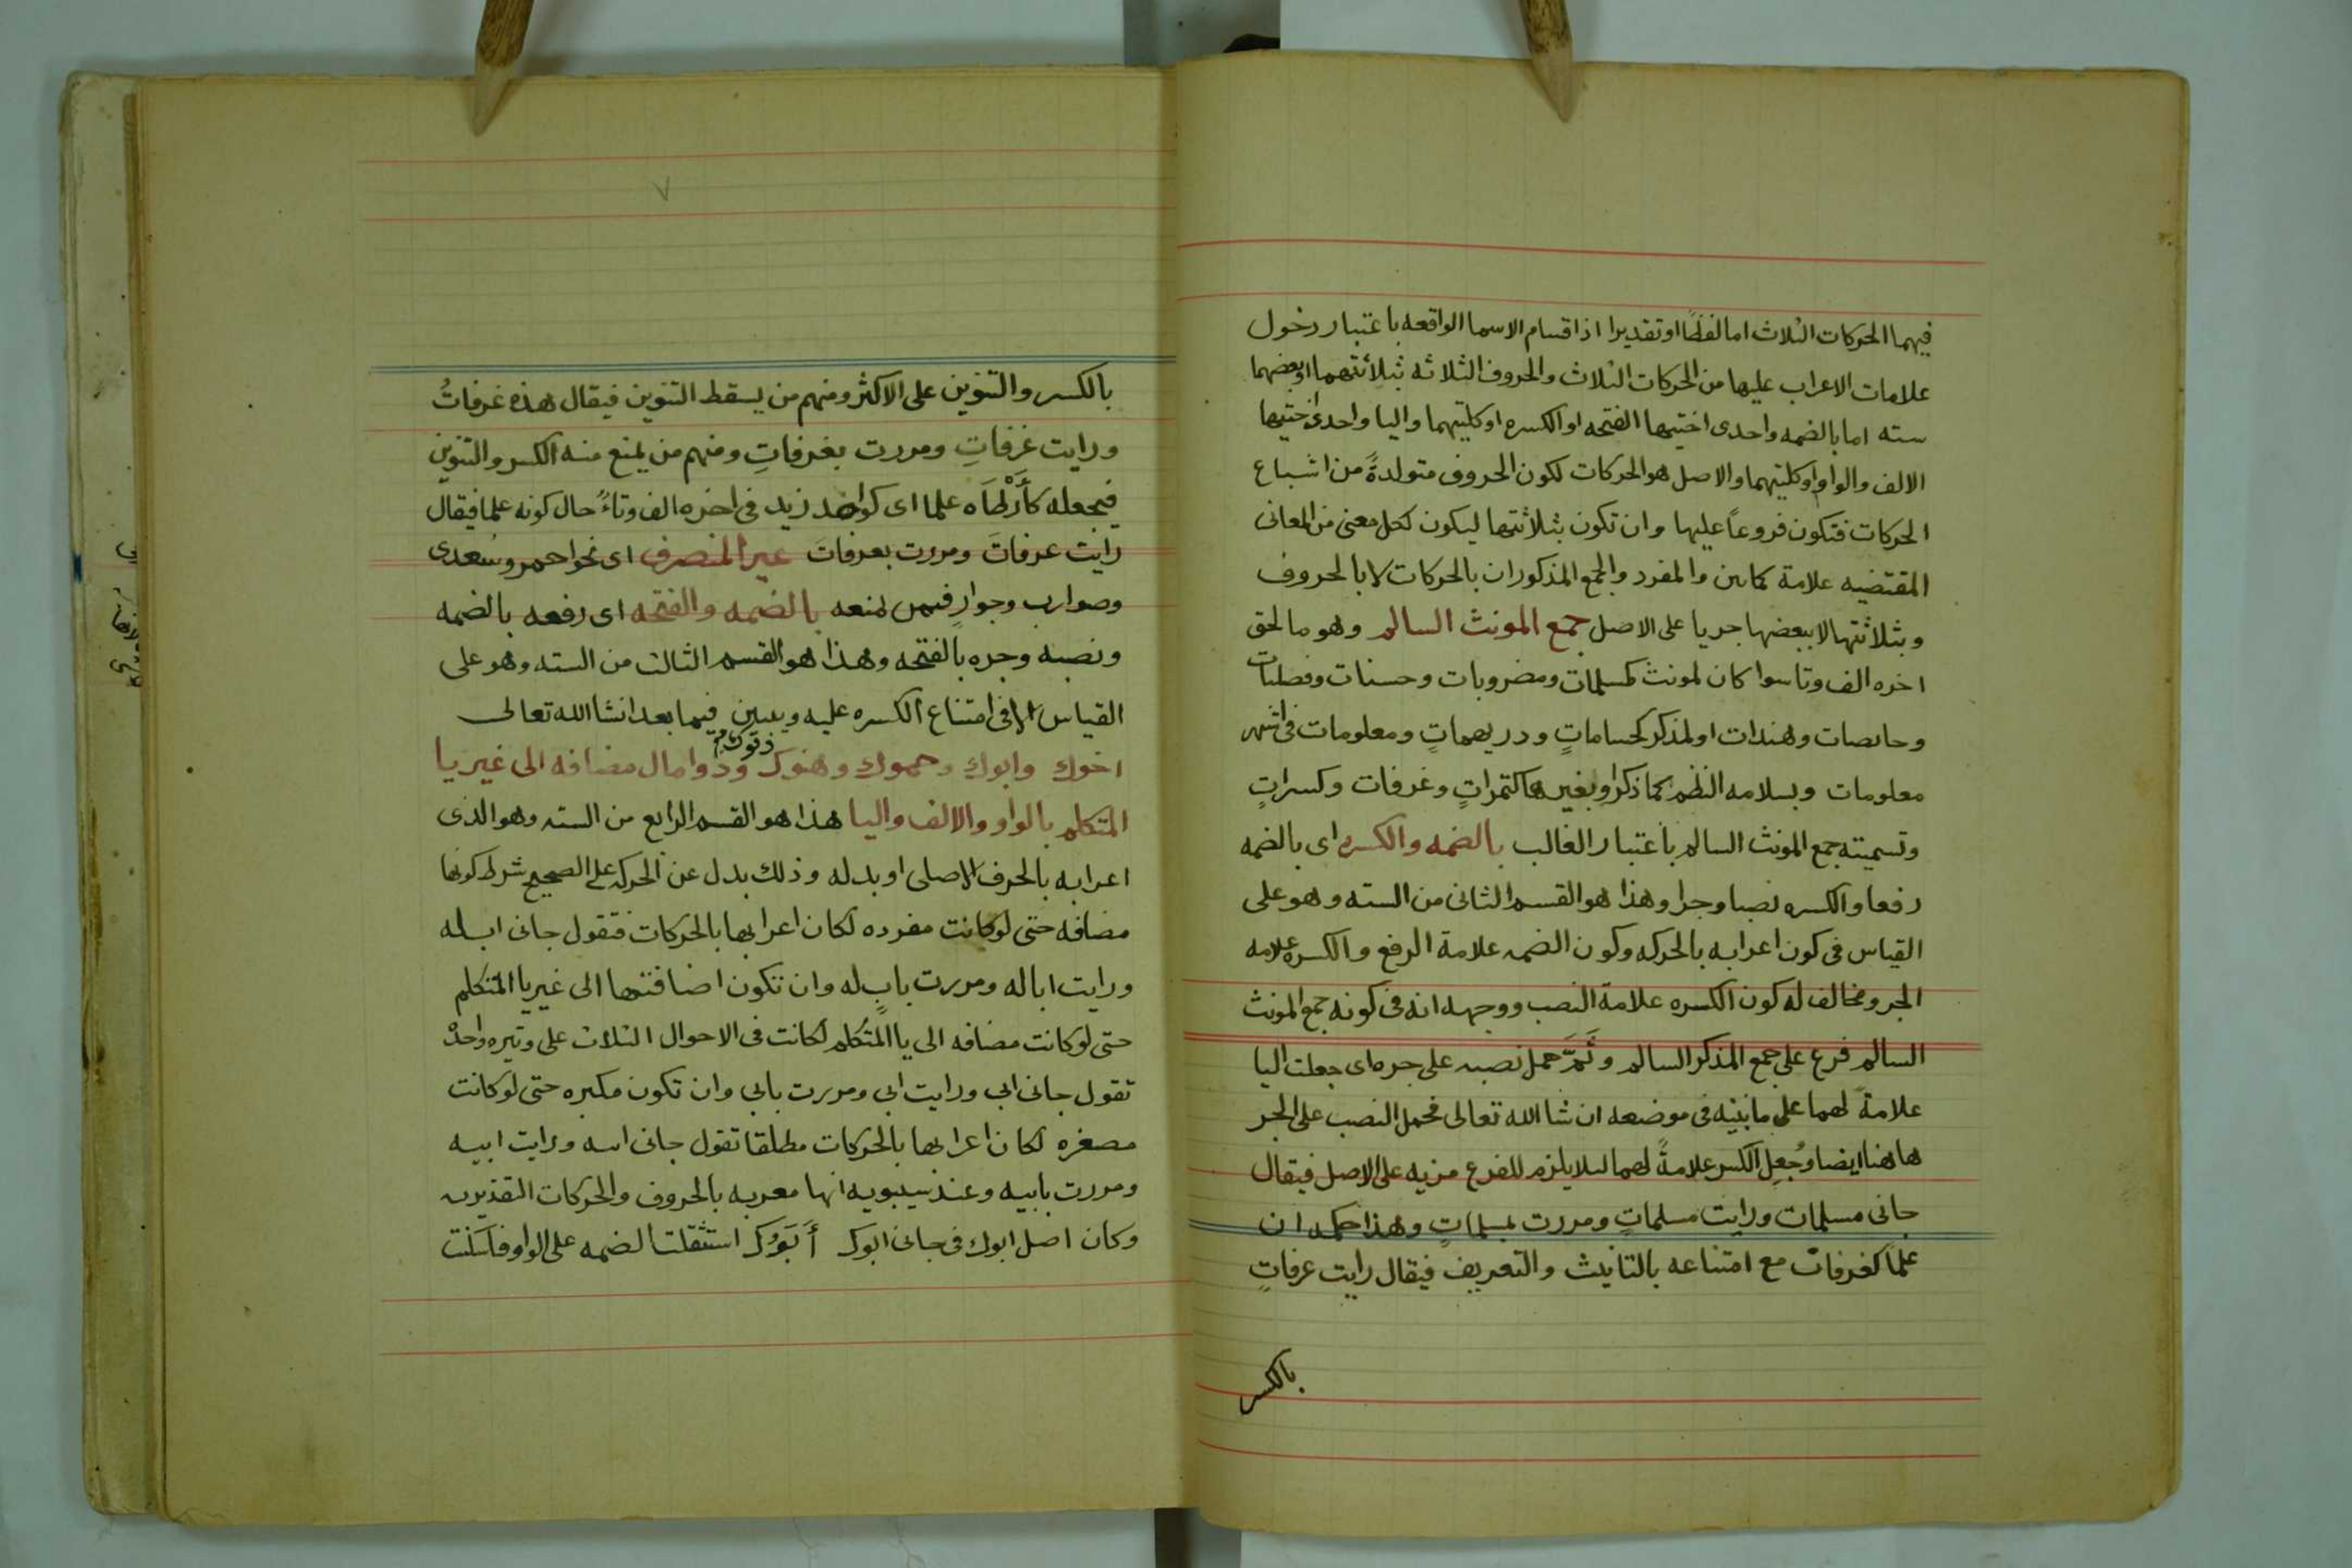 فيهما الحركات الثلاث اما لفظًا او تقديرا اذ اقسام الاسما الواقعه باعتبار دخول
علامات الاعراب عليها من الحركات الثلاث والحروف الثلاثه بثلاثتهما او ببعضهما
سته اما بالضمه واحدى اختيها الفتحه او الكسره او كلتيهما واليا واحدى اختيها
الالف والواو او كلتيهما والاصل هو الحركات لكون الحروف متولدةً من اشباع
الحركات فتكون فروعاً عليها وان تكون بثلاثتها ليكون لكل معنى من المعانى
المقتضيه علامة كما بين والمفرد والجمع المذكوران بالحركات لا بالحروف
وبثلاثتها لا ببعضها جريا على الاصل جمع المونث السالم وهو ما لحق
اخره الف وتا سوا كان لمونث كمسلمات ومضروبات وحسنات وفضليات
وحايصات وهندات او لمذكر كحساماتٍ ودريهماتٍ ومعلومات فى اشهر
معلومات وبسلامه النظم كما ذكر او بغيرها كتمراتٍ وغرفات وكسراتٍ
وتسميته جمع المونث السالم باعتبار الغالب بالضمه والكسره اى بالضمه
رفعا والكسره نصبا وجرا وهذا هو القسم الثانى من السته وهو على
القياس فى كون اعرابه بالحركه وكون الضمه علامة الرفع والكسره علامه
الجر ومخالف له كون الكسره علامة النصب ووجهه انه فى كونه جمع المونث
السالم فرع على جمع المذكر السالم وثَمَّ حمل نصبه على جره اى جعلت اليا
علامةً لهما على ما نبينه فى موضعه ان شا الله تعالى فحمل النصب على الجر
هاهنا ايضا وجُعِل الكسر علامةً لهما ليلا يلزم للفرع مزيه على الاصل فيقال
جانى مسلمات ورايت مسلماتٍ ومررت بمسلماتٍ وهذا حكمه ان
علمًا كغرفات مع امتناعه بالتانيث والتعريف فيقال رايت عرفاتٍ
بالكسر
٧
بالكسر والتنوين على الاكثر ومنهم من يسقط التنوين فيقال هذه غرفاتُ
ورايت غرفاتِ ومررت بغرفاتِ ومنهم من يمنع منه الكسر والتنوين
فيجعله كأرْطَاه علما اى كواحد زيد فى اخره الف وتاءً حال كونه علما فيقال
رايت عرفاتَ ومررت بعرفاتَ غير المنصرف اى نحو احمر وسُعدى
وصوارب وجوارٍ فيمن لمنعه بالضمه والفتحه اى رفعه بالضمه
ونصبه وجره بالفتحه وهذا هو القسم الثالث من السته وهو على
القياس الا فى امتناع الكسره عليه ويبين فيما بعد انشا الله تعالى
اخوك وابوك وحموك وهنوك وذو مال مضافه الى غير يا
المتكلم بالواو والالف واليا هذا هو القسم الرابع من السته وهو الذى
اعرابه بالحرف الاصلى او بدله وذلك بدل عن الحركه على الصحيح شرط كونها
مضافه حتى لو كانت مفرده لكان اعرابها بالحركات فتقول جانى اب له
ورايت ابا له ومررت بابٍ له وان تكون اضافتها الى غير يا المتكلم
حتى لو كانت مضافه الى يا المتكلم لكانت فى الاحوال الثلاث على وتيره واحدةْ
تقول جانى ابى ورايت ابى ومررت بابى وان تكون مكبره حتى لو كانت
مصغره لكان اعرابها بالحركات مطلقا تقول جانى ابيه ورايت ابيه
ومررت بابيه وعند سيبويه انها معربه بالحروف والحركات التقديريه
وكان اصل ابوك فى جانى ابوك أَبَوُكَ استثقلت الضمه على الواو فاسكنت